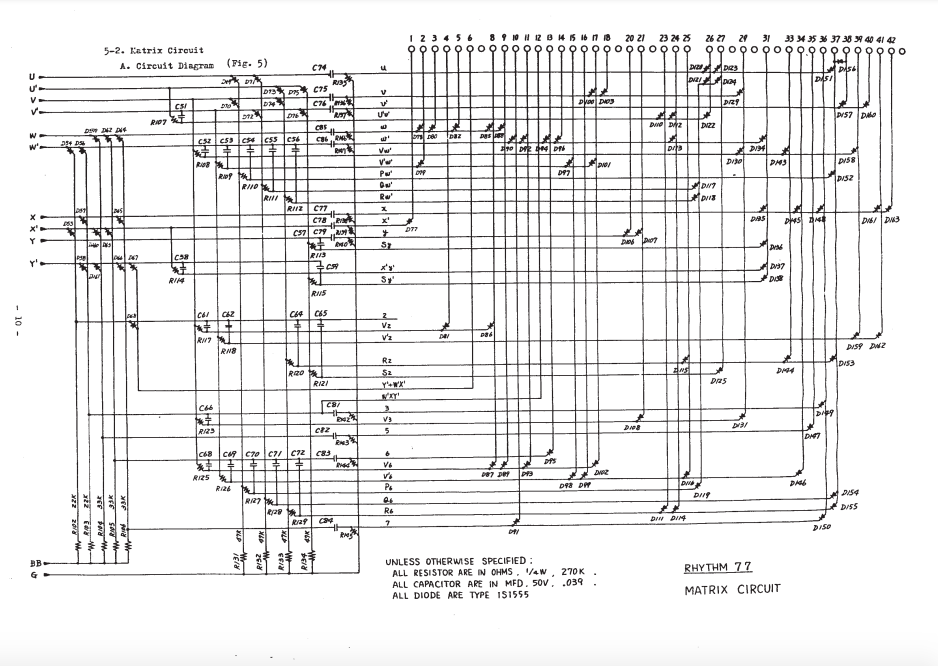 5-2. Matrix Circuit
A. Circuit Diagram (Fig. 5)
1 2 3 4 5 6 8 9 10 11 12 13 14 15 16 17 18 20 21 23 24 25 26 27 28 29 31 33 34 35 36 37 38 39 40 41 42
U C74 u D120 D123 D156
U' R135 D121 D124 D151
V C75 v
V' C51 C76 v' D100 D103 D129
R107 R137 U'v' D110 D112 D122 D157 D160
W D62 D64 C85 w D78 D80 D82 D85
W' C52 C53 C54 C55 C56 C86 w' D90 D92 D94 D96 D113 D134
D54 D56 Vw' D130 D143 D158
R108 V'w' D79 D97 D101
R109 Pw' D152
R110 Qw' D117
R111 Rw' D118
R112 C77 x D135 D145 D148 D161 D163
X C78 x' D77
X' C57 C79 y D106 D107
Y R140 Sy D136
R113
Y' C58 C59 x'y' D137
R114 Sy' D138
R115
C61 C62 C64 C65 2
D63 V2 D81 D86
R117 V'2 D159 D162
R118
R2 D115 D144 D153
R120 S2 D125
R121 Y'+W'X'
W'XY'
C81 3 D149
C66 R142 V3 D108 D131
R123 C82 5 D147
R143
C68 C69 C70 C71 C72 C83 6 D95
R144 V6 D87 D89 D93 D102
R125 V'6 D98 D99 D116 D146
R126 P6 D119
R127 Q6 D154
R128 R6 D111 D114 D155
R129 C84 7 D91 D150
R145
R102 22K R103 22K R104 33K R105 33K R106 33K
R131 47K R132 47K R133 47K R134 47K
BB
G
UNLESS OTHERWISE SPECIFIED :
ALL RESISTOR ARE IN OHMS , 1/4W , 270K .
ALL CAPACITOR ARE IN MFD. 50V. .039 .
ALL DIODE ARE TYPE 1S1555
RHYTHM 77
MATRIX CIRCUIT
- 10 -